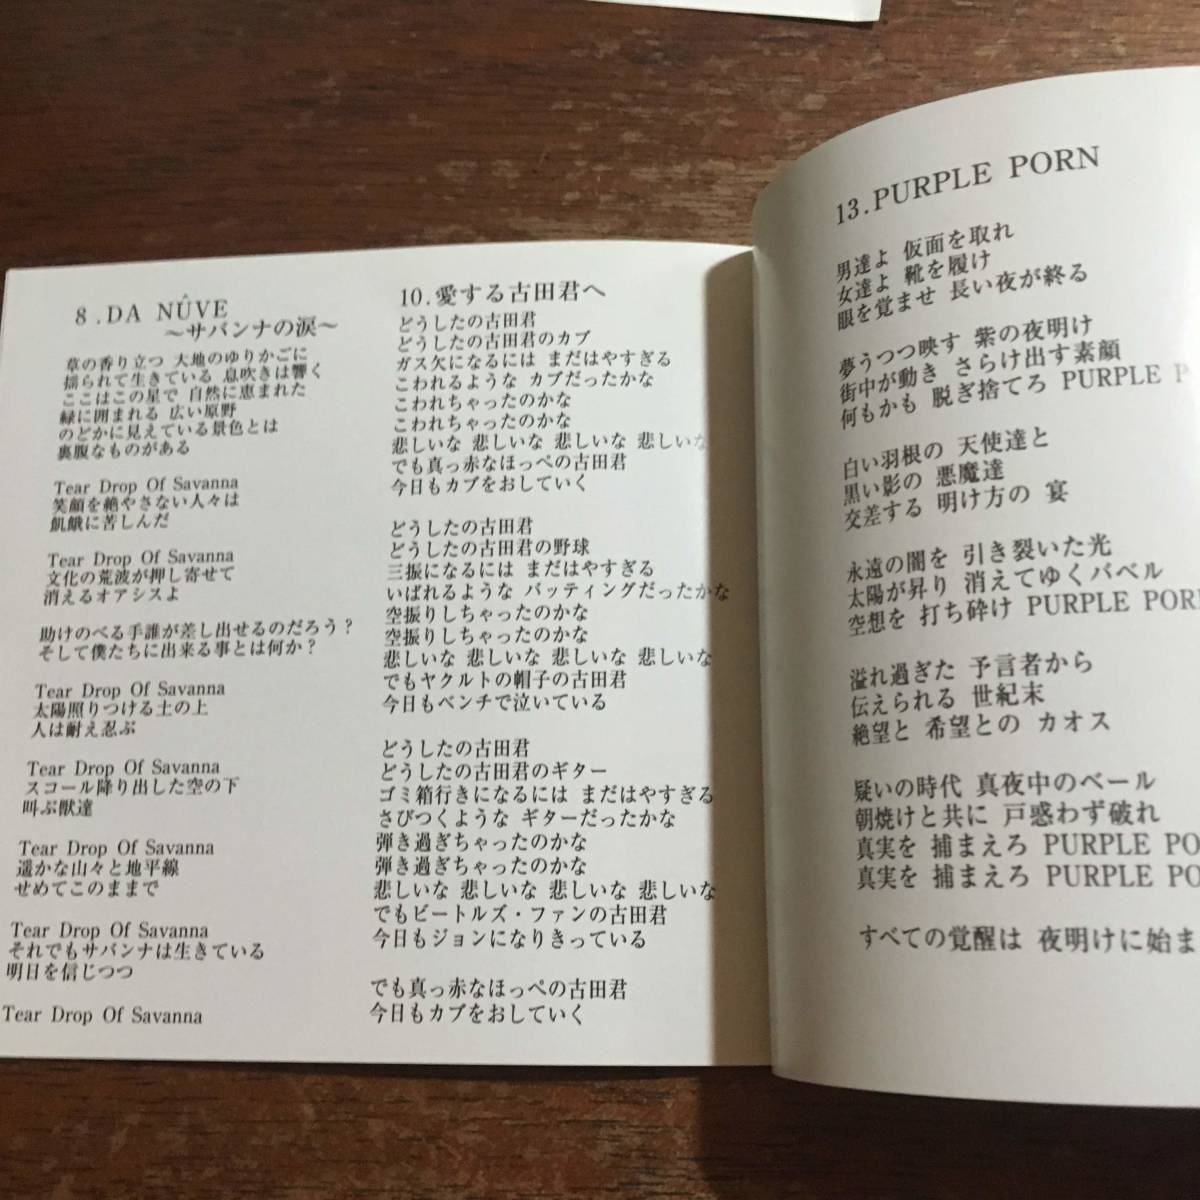 8.DA NÛVE
～サバンナの涙～
草の香り立つ 大地のゆりかごに
揺られて生きている 息吹きは響く
ここはこの星で 自然に恵まれた
緑に囲まれる 広い原野
のどかに見えている景色とは
裏腹なものがある
Tear Drop Of Savanna
笑顔を絶やさない人々は
飢餓に苦しんだ
Tear Drop Of Savanna
文化の荒波が押し寄せて
消えるオアシスよ
助けのべる手誰が差し出せるのだろう？
そして僕たちに出来る事とは何か？
Tear Drop Of Savanna
太陽照りつける土の上
人は耐え忍ぶ
Tear Drop Of Savanna
スコール降り出した空の下
叫ぶ獣達
Tear Drop Of Savanna
遥かな山々と地平線
せめてこのままで
Tear Drop Of Savanna
それでもサバンナは生きている
明日を信じつつ
Tear Drop Of Savanna
10.愛する古田君へ
どうしたの古田君
どうしたの古田君のカブ
ガス欠になるには まだはやすぎる
こわれるような カブだったかな
こわれちゃったのかな
こわれちゃったのかな
悲しいな 悲しいな 悲しいな 悲しいな
でも真っ赤なほっぺの古田君
今日もカブをおしていく
どうしたの古田君
どうしたの古田君の野球
三振になるには まだはやすぎる
いばれるような バッティングだったかな
空振りしちゃったのかな
空振りしちゃったのかな
悲しいな 悲しいな 悲しいな 悲しいな
でもヤクルトの帽子の古田君
今日もベンチで泣いている
どうしたの古田君
どうしたの古田君のギター
ゴミ箱行きになるには まだはやすぎる
さびつくような ギターだったかな
弾き過ぎちゃったのかな
弾き過ぎちゃったのかな
悲しいな 悲しいな 悲しいな 悲しいな
でもビートルズ・ファンの古田君
今日もジョンになりきっている
でも真っ赤なほっぺの古田君
今日もカブをおしていく
13.PURPLE PORN
男達よ 仮面を取れ
女達よ 靴を履け
眼を覚ませ 長い夜が終る
夢うつつ映す 紫の夜明け
街中が動き さらけ出す素顔
何もかも 脱ぎ捨てろ PURPLE P
白い羽根の 天使達と
黒い影の 悪魔達
交差する 明け方の 宴
永遠の闇を 引き裂いた光
太陽が昇り 消えてゆくバベル
空想を 打ち砕け PURPLE POR
溢れ過ぎた 予言者から
伝えられる 世紀末
絶望と 希望との カオス
疑いの時代 真夜中のベール
朝焼けと共に 戸惑わず破れ
真実を 捕まえろ PURPLE PO
真実を 捕まえろ PURPLE PO
すべての覚醒は 夜明けに始ま